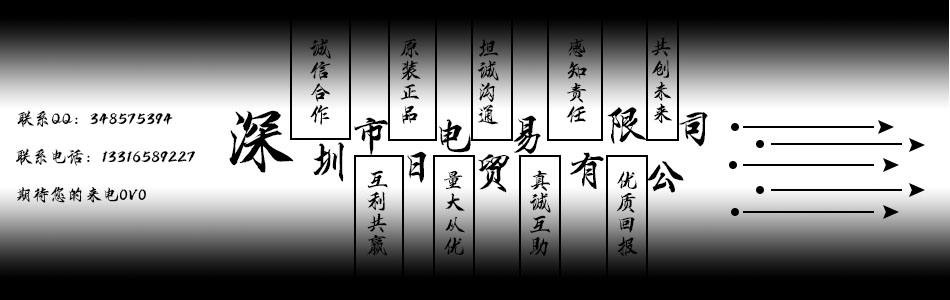 联系QQ：348575394
联系电话：13316589227
期待您的来电OVO
诚信合作
原装正品
坦诚沟通
感知责任
共创未来
深圳市日电贸易有限公司
互利共赢
量大从优
真诚互助
优质回报